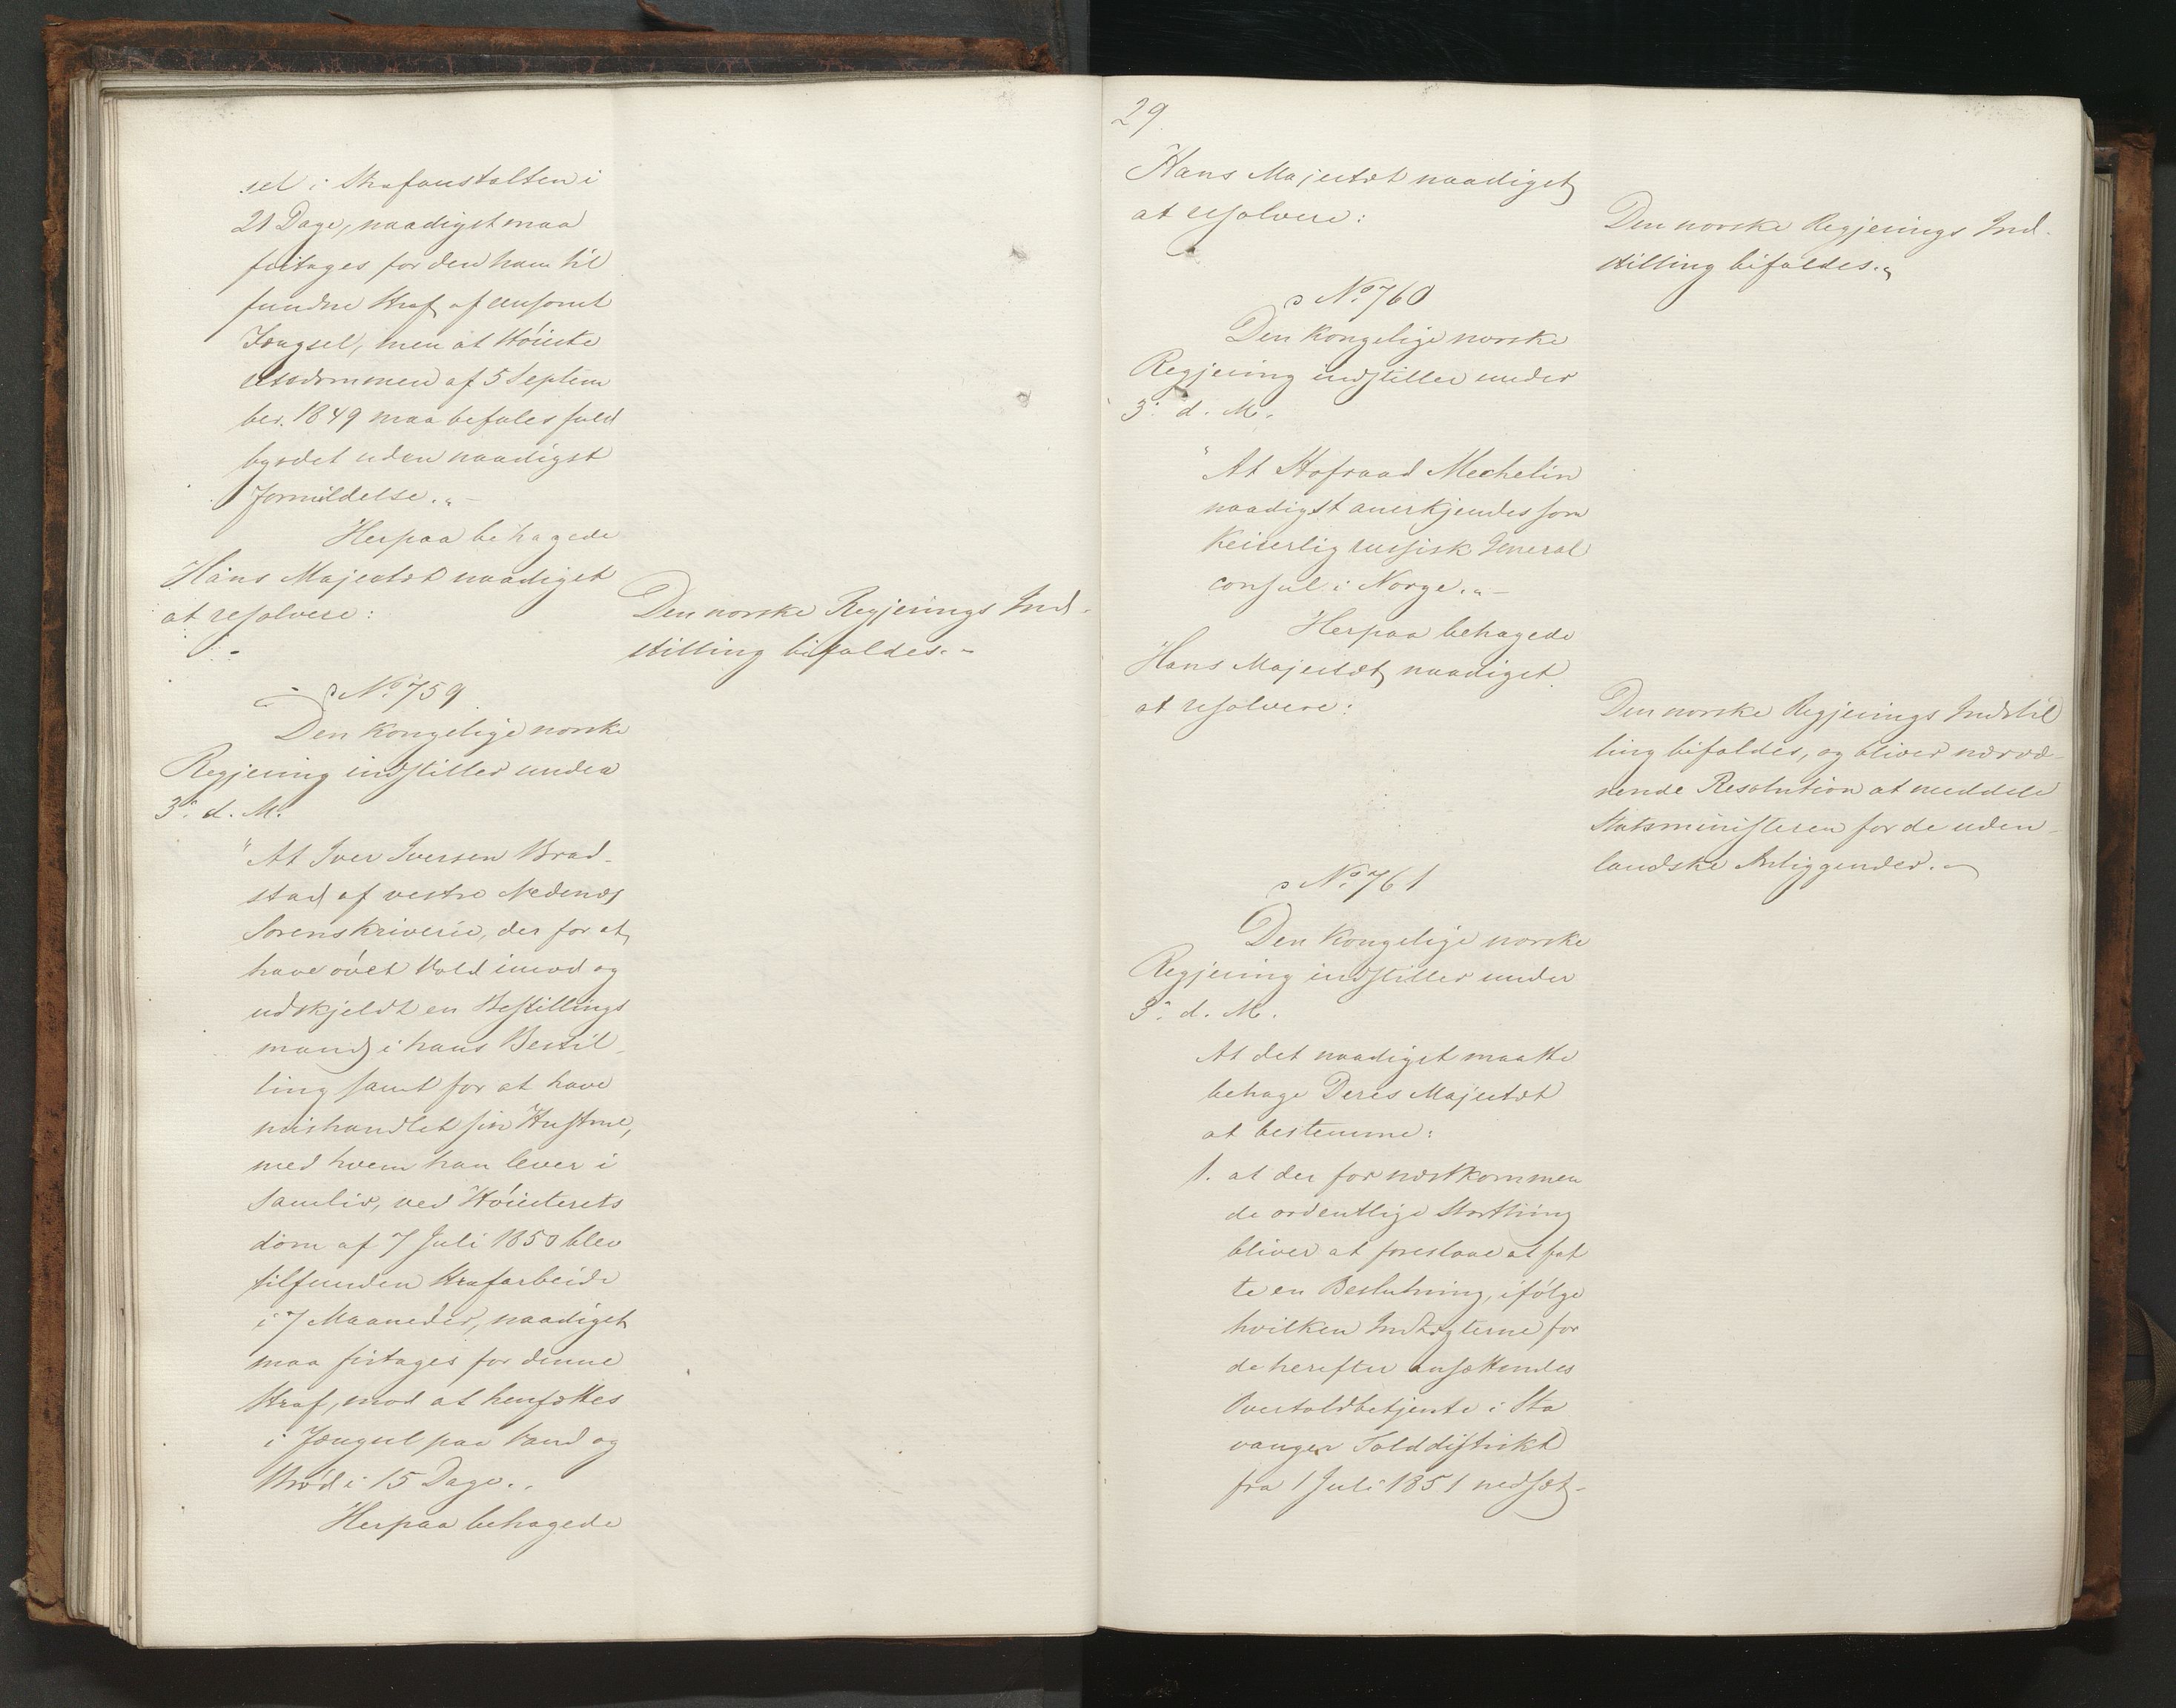 sel i Strafanstalten i
21 Dage, naadigst maa
fritages for den ham til
fundne Straf af eensomt
Fængsel, men at Höieste
retsdommen af 5 Septem
ber. 1849 maa befales fuld
byrdet uden naadigst
Formildelse."-
Herpaa behagede
Hans Majestæt naadigst
at resolvere:
Den norske Regjerings Ind-
stilling bifaldes.-
No. 759
Den kongelige norske
Regjering indstiller under
3: d. M.
"At Iver Iversen Brad-
stad af vestre Nedenæs
Sorenskriverie, der for at
have övet Vold imod og
udskjeldt en Bestillings
mand i hans Bestil-
ling samt for at have
mishandlet sin Hustrue,
med hvem han lever i
Samliv, ved Höiesterets
dom af 7 Juli 1850 blev
tilfunden Strafarbeide
i 7 Maaneder, naadigst
maa fritages for denne
Straf, mod at hensættes
i Fængsel paa Vand og
Bröd i 15 Dage..
Herpaa behagede
29
Hans Majestæt naadigst
at resolvere:
Den norske Regjerings Ind-
stilling bifaldes."
No. 760
Den Kongelige norske
Regjering indstiller under
3: d. M.
"At Hofraad Mechelin
naadigst anerkjendes som
Keiserlig russisk General
consul i Norge."-
Herpaa behagede
Hans Majestæt naadigst
at resolvere:
Den norske Regjerings Indstil
ling bifaldes, og bliver nærvæ-
rende Resolution at meddele
Statsministeren for de uden-
landske Anliggender.-
No. 761
Den Kongelige norske
Regjering indstiller under
3: d. M.
At det naadigst maatte
behage Deres Majestæt
at bestemme:
1. at der for næstkommen
de ordentlige Storthing
bliver at foreslaae at fat
te en Beslutning, ifölge
hvilken Indtægterne for
de herefter ansættendes
Overtoldbetjente i Sta
vanger Tolddistrikt
fra 1 Juli 1851 nedsæt-